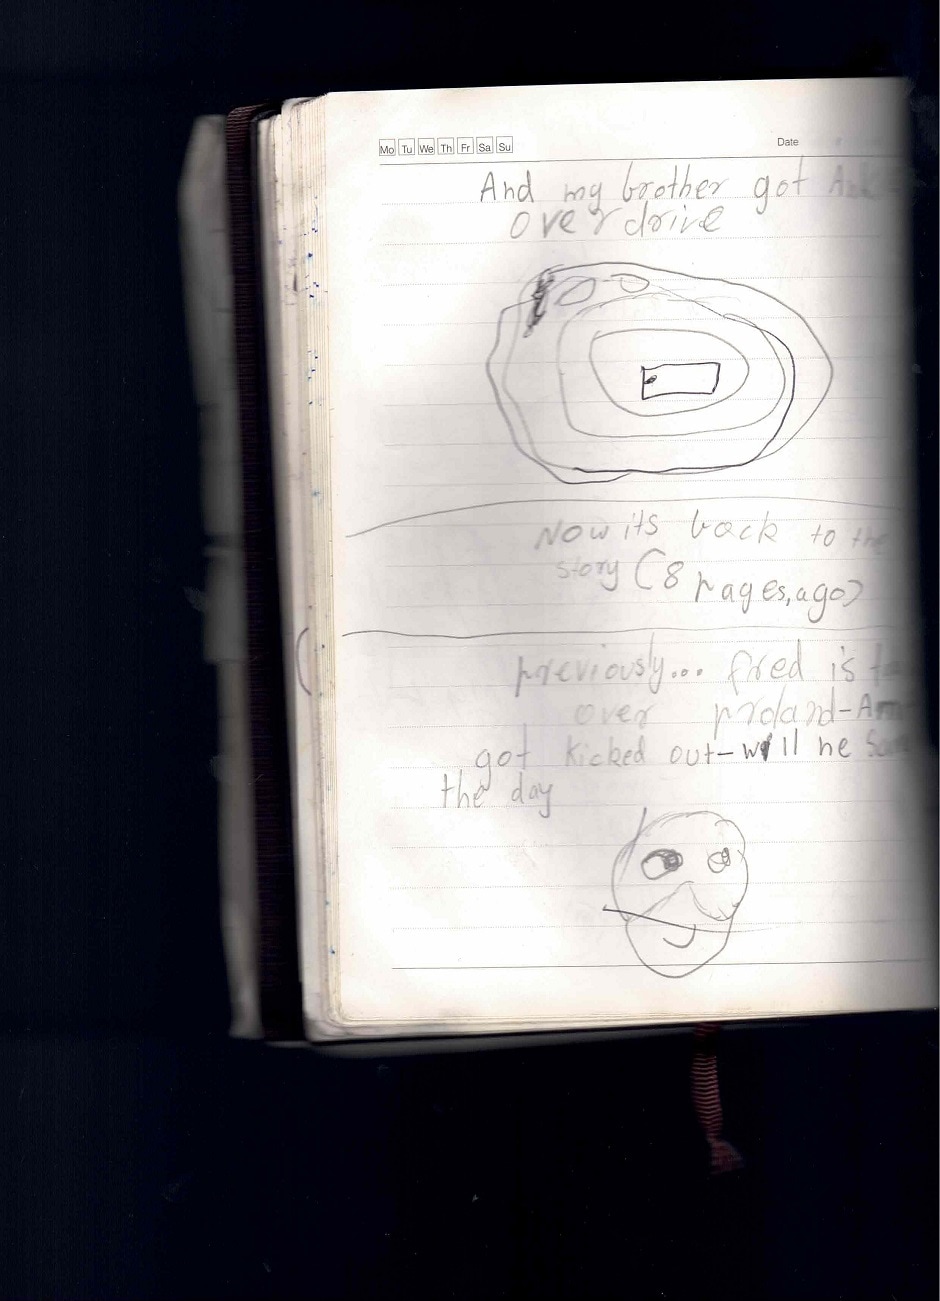 Mo Tu We Th Fr Sa Su
Date
And my brother got
over drive
Now its back to the
story (8 pages, ago)
previously... fred is
over
got kicked out-will he
the day